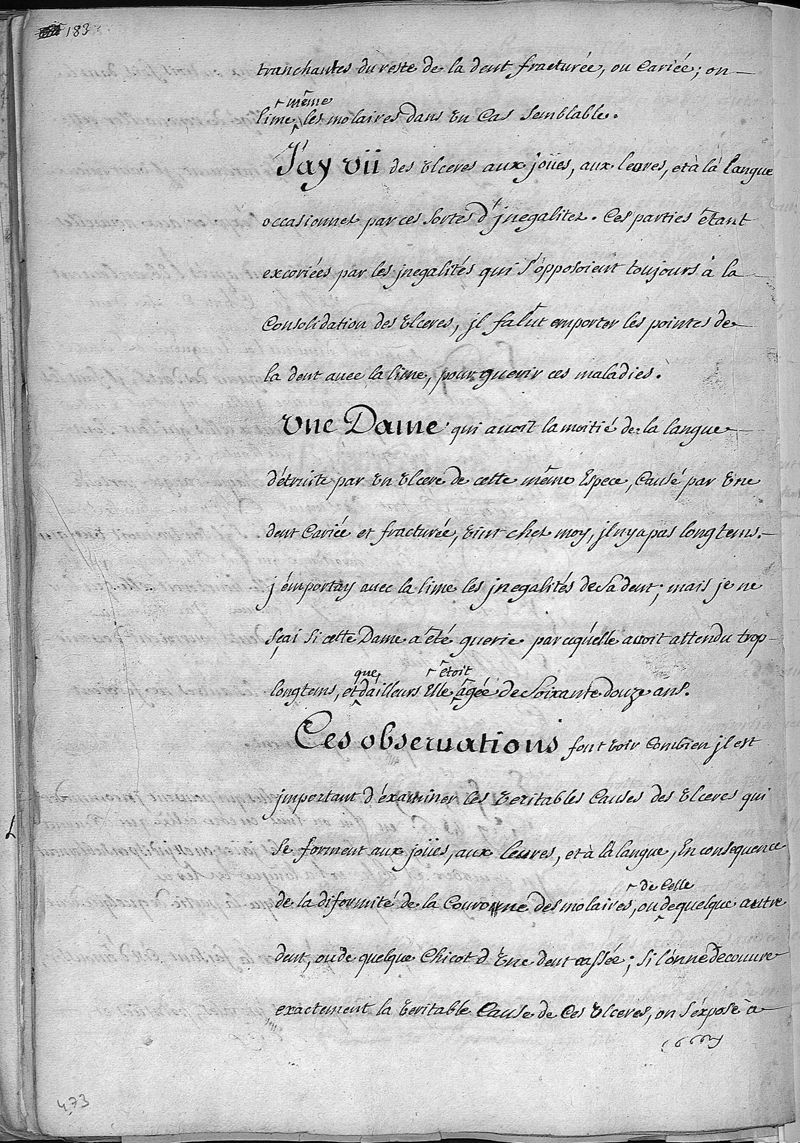 183
tranchantes du reste de la dent fracturée, ou Cariée; on
lime même les molaires dans un Cas semblable.
J'ay vû des Ulceres aux joües, aux leures, et à la langue
occasionnez par ces sortes d'jnegalitez. Ces parties êtant
excoriées par les jnegalités qui s'opposoient toujours à la
Consolidation des Ulceres, jl falut emporter les pointes de
la dent auec la lime, pour guerir ces maladies.
Une Dame qui auoit la moitié de la langue
détruite par un Ulcere de cette même Espece, Causé par Une
dent Cariée et fracturée, vint chez moy, jl n'y a pas longtems.
j'emportay auec la lime les jnegalités de Sa dent; mais je ne
sçai si cette Dame a été guerie parcequ'elle auoit attendu trop
longtems, et que d'ailleurs Elle êtoit agée de Soixante douze ans.
Ces obseruations font voir Combien jl est
jmportant d'éxaminer les veritables Causes des Ulceres qui
se forment aux joües, aux leures, et à la langue, En consequence
de la diformité de la Couronne des molaires, ou de Celle de quelque autre
dent, ou de quelque Chicot d'Une dent cassée; Si l'on ne decouure
exactement la veritable Cause de Ces Ulceres, on s'éxpose à
473